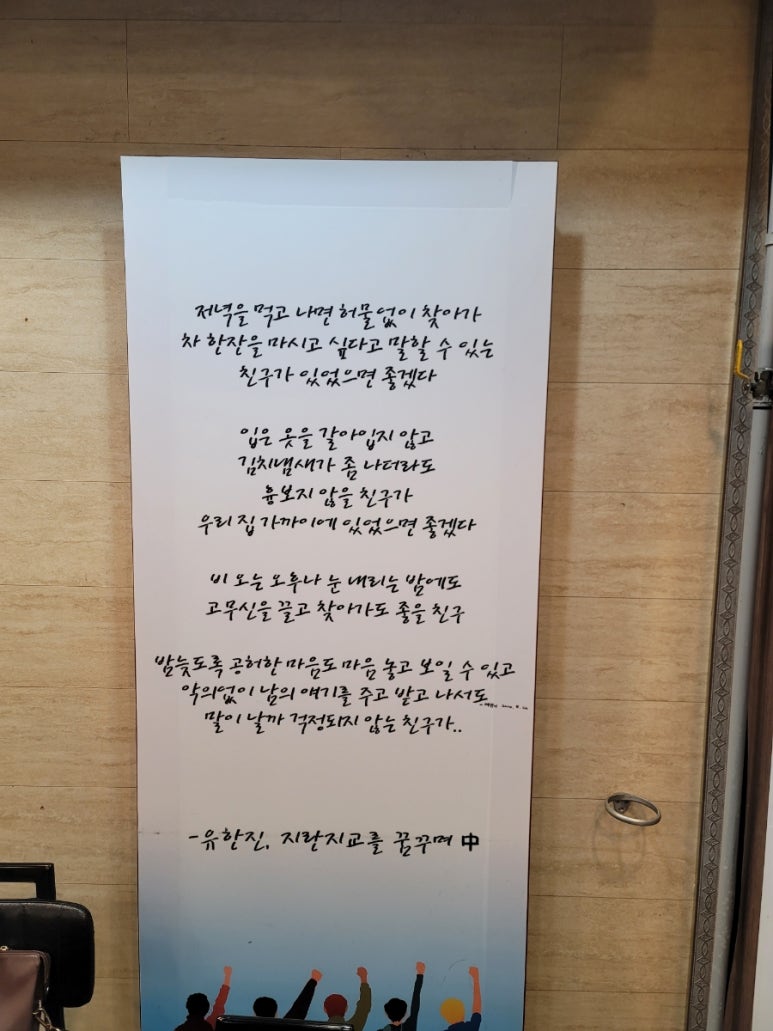 저녁을 먹고 나면 허물없이 찾아가
차 한잔을 마시고 싶다고 말할 수 있는
친구가 있었으면 좋겠다
입은 옷을 갈아입지 않고
김치냄새가 좀 나더라도
흉보지 않을 친구가
우리 집 가까이에 있었으면 좋겠다
비 오는 오후나 눈 내리는 밤에도
고무신을 끌고 찾아가도 좋을 친구
밤늦도록 공허한 마음도 마음 놓고 보일 수 있고
악의없이 남의 얘기를 주고 받고 나서도
말이 날까 걱정되지 않는 친구가..
-유한진, 지란지교를 꿈꾸며 中